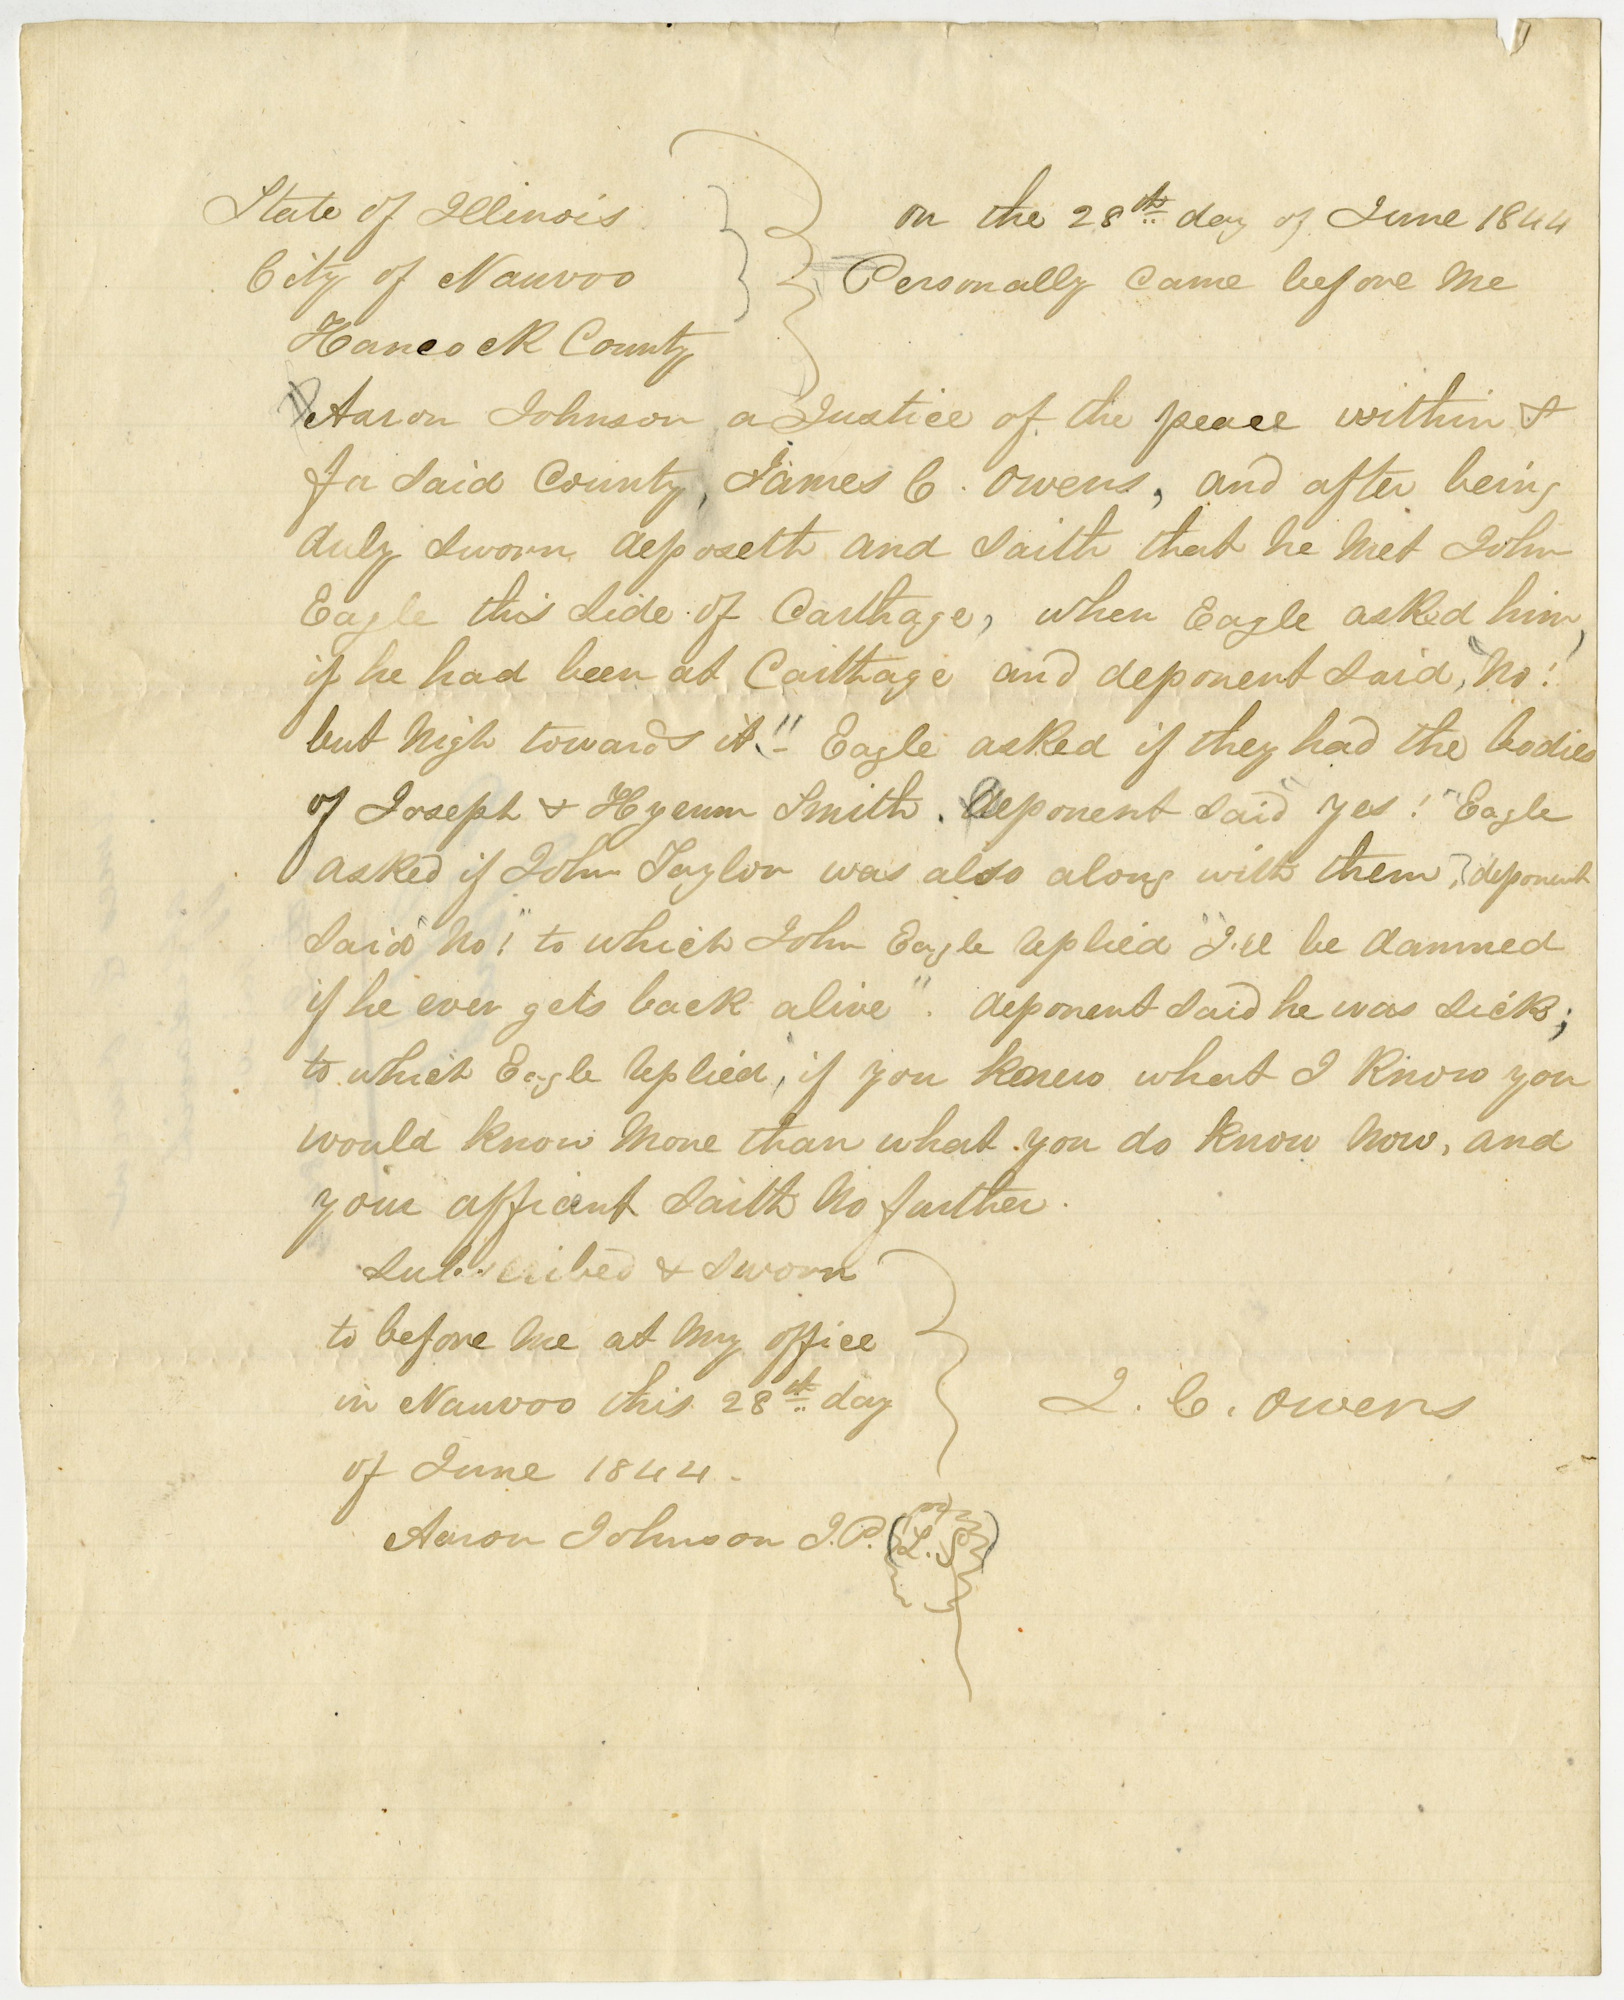 State of Illinois
City of Nauvoo
Hancock County
on the 28th day of June 1844
Personally came before me
Aaron Johnson a Justice of the peace within &
for said County, James C. Owens, and after being
duly sworn deposeth and saith that he met John
Eagle this side of Carthage, when Eagle asked him,
if he had been at Carthage and deponent said, "No!
but nigh towards it." - Eagle asked if they had the bodies
of Joseph & Hyrum Smith. Deponent said "yes!" Eagle
asked if John Taylor was also along with them, deponent
said "No!" to which John Eagle replied "I'll be damned
if he ever gets back alive". deponent said he was sick;
to which Eagle replied, if you knew what I know you
would know more than what you do know now, and
your affiant saith no further.
Subscribed & sworn
to before me at my office
in Nauvoo this 28th day
of June 1844.
J. C. Owens
Aaron Johnson J.P. (L.S)